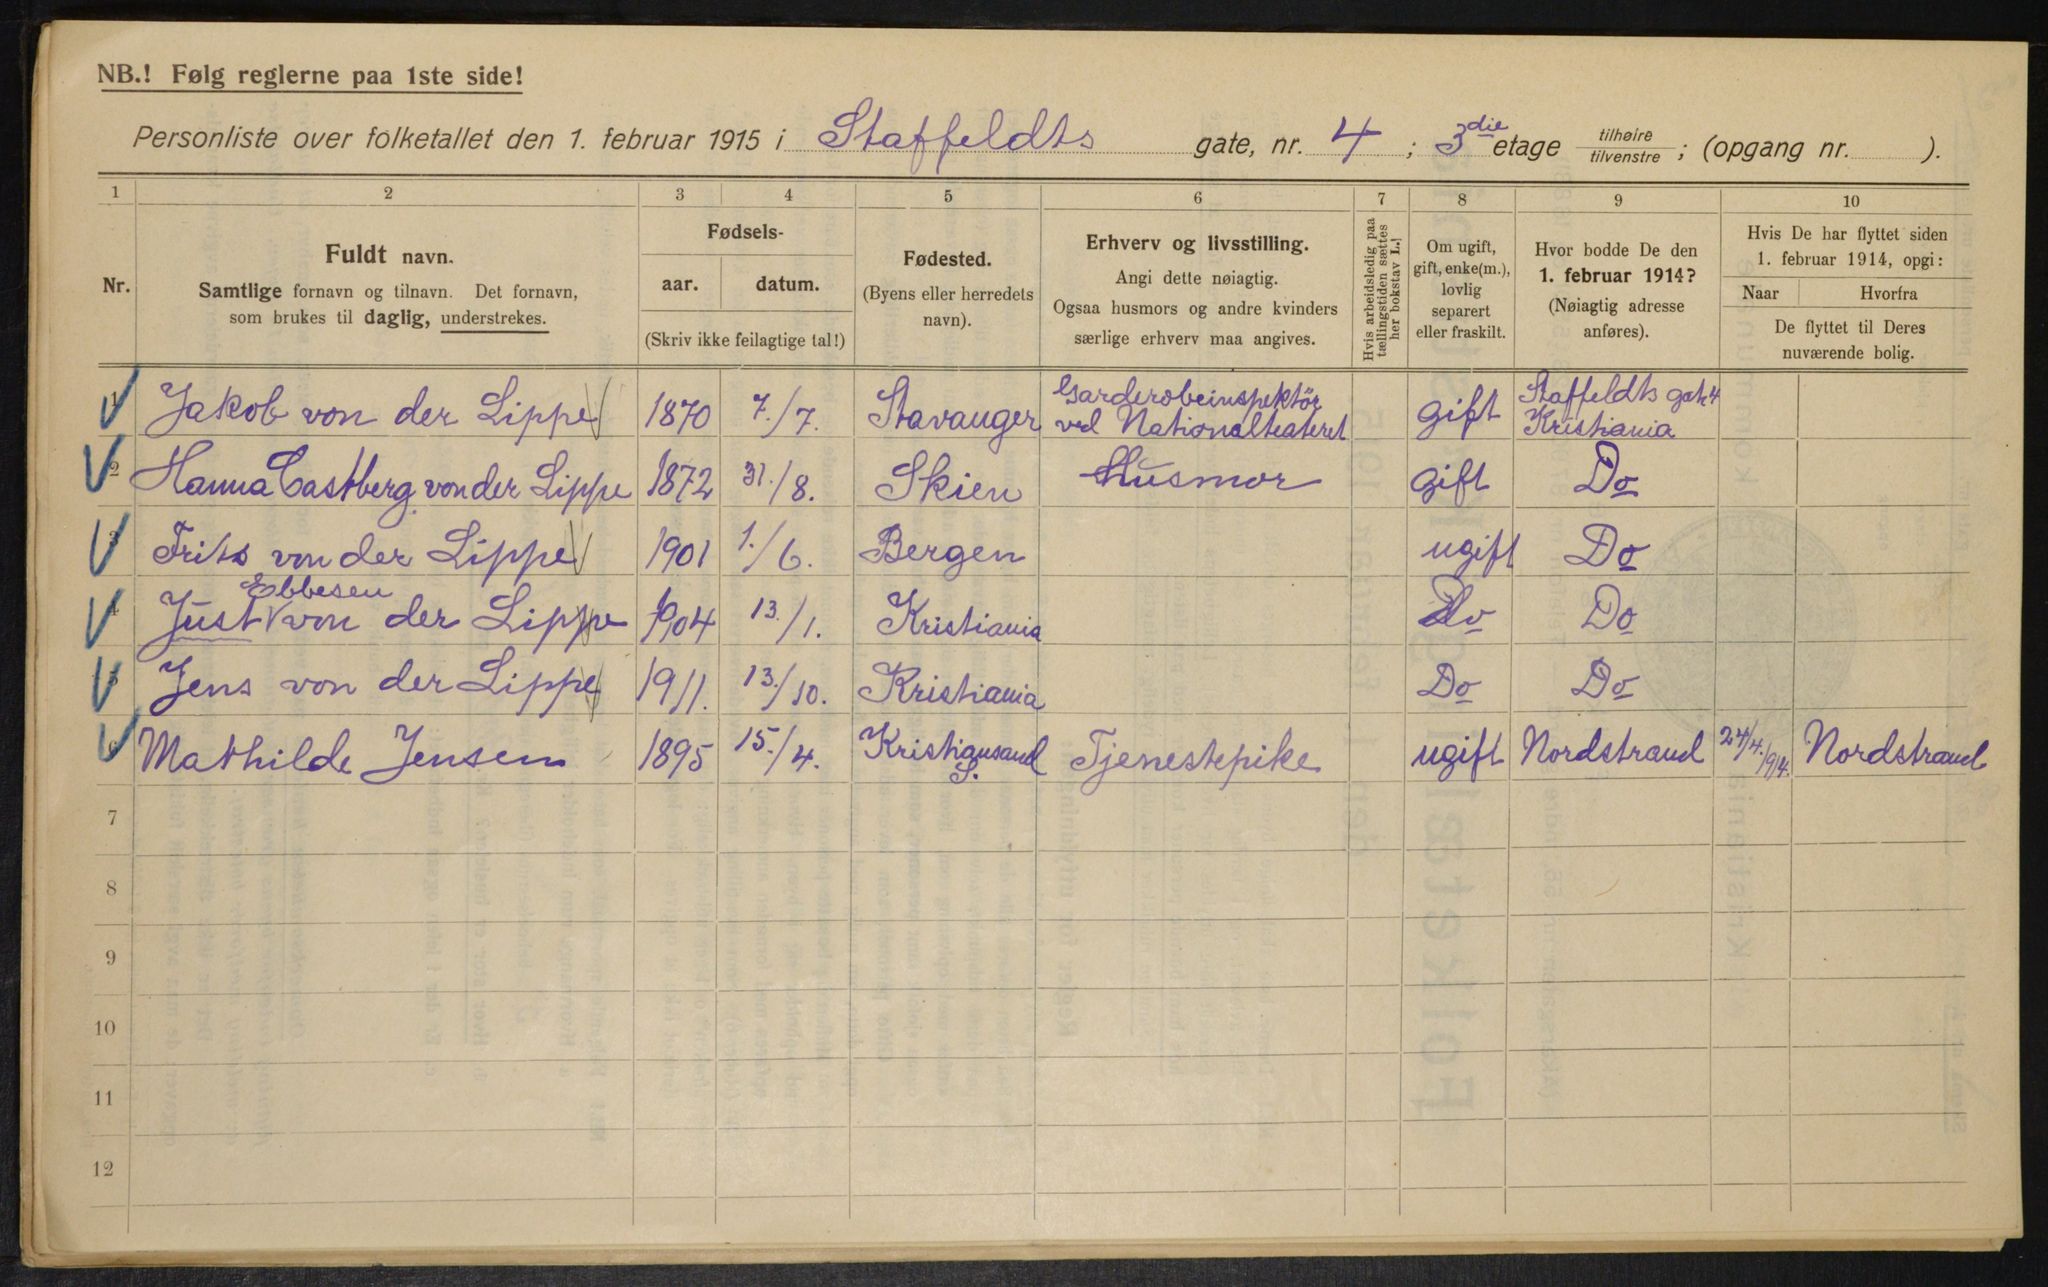 NB.! Følg reglerne paa 1ste side!
Personliste over folketallet den 1. februar 1915 i Staffeldts gate, nr. 4 ; 3die etage tilhøire/tilvenstre ; (opgang nr. ).
1 2 3 4 5 6 7 8 9 10
Nr.
Fuldt navn.
Samtlige fornavn og tilnavn. Det fornavn,
som brukes til daglig, understrekes.
Fødsels-
aar. datum.
(Skriv ikke feilagtige tal!)
Fødested.
(Byens eller herredets
navn).
Erhverv og livsstilling.
Angi dette nøiagtig.
Ogsaa husmors og andre kvinders
særlige erhverv maa angives.
Hvis arbeidsledig paa
tællingstiden sættes
her bokstav L.]
Om ugift,
gift, enke(m.),
lovlig
separert
eller fraskilt.
Hvor bodde De den
1. februar 1914?
(Nøiagtig adresse
anføres).
Hvis De har flyttet siden
1. februar 1914, opgi:
Naar Hvorfra
De flyttet til Deres
nuværende bolig.
1 Jakob von der Lippe 1870 7./7. Stavanger Garderobeinspektör ved Nationalteateret gift Staffeldts gate 4 Kristiania
2 Hanna Castberg von der Lippe 1872 31./8. Skien Husmor gift Do
3 Frits von der Lippe 1901 1./6. Bergen ugift Do
4 Just Ebbesen von der Lippe 1904 13./1. Kristiania Do Do
5 Jens von der Lippe 1911. 13./10. Kristiania Do Do
6 Mathilde Jensen 1895 15./4. Kristiansand S. Tjenestepike ugift Nordstrand 24/4./914. Nordstrand
7
8
9
10
11
12